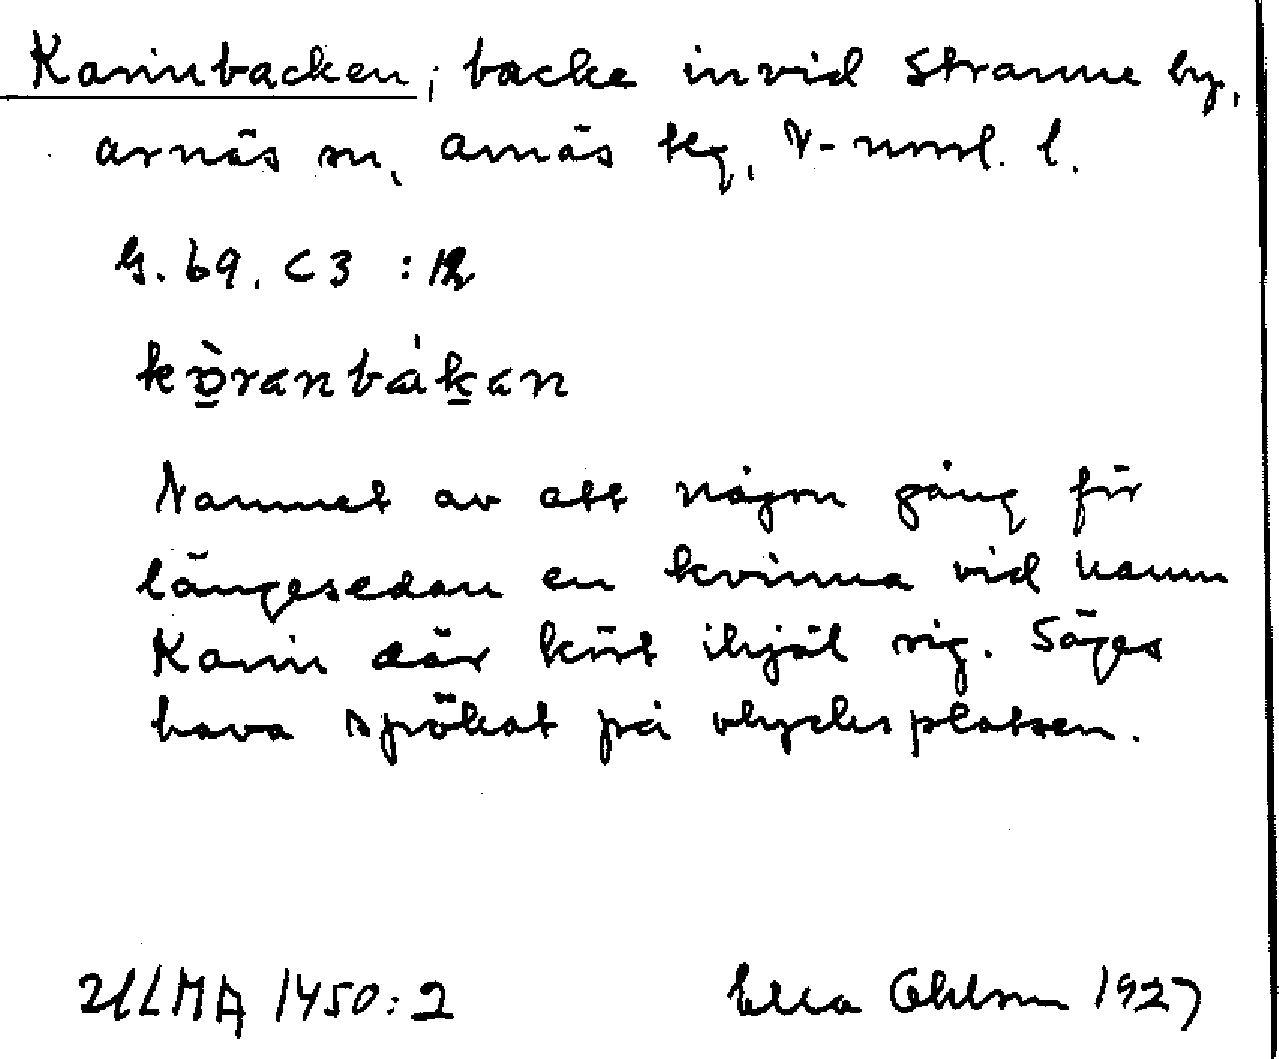 Karinbacken, backe invid Stranne by,
Arnäs sn, Arnäs tg, V-norrl. l.
G. 69. C3 : 12
kòranbákan
Namnet av att någon gång för
längesedan en kvinna vid namn
Karin där kört ihjäl sig. Säges
hava spökat på olycksplatsen.
ULMA 1450:2 Ella Ohlson 1927